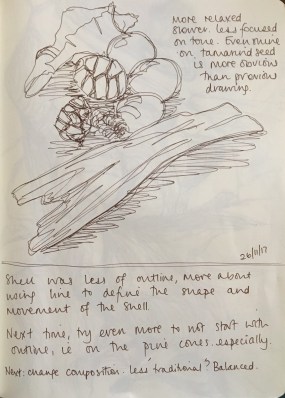 More relaxed
slower. less focused
on tone. Even shine
on tamarind seed
is more obvious
than previous
drawing.
26/11/17
Shell was less of outline, more about
using line to define the shape and
movement of the shell.
Next time, try even more to not start with
outline, ie on the pine cones especially.
Next: change composition. less 'traditional'? Balanced.